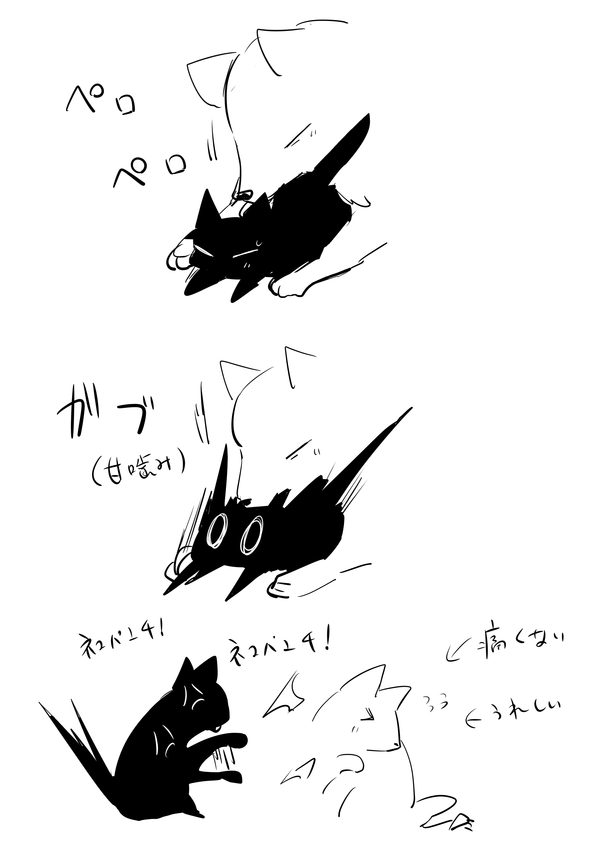 ペロ
ペロ
ガブ
(甘噛み)
ネコパンチ!
ネコパンチ!
←痛くない
←うれしい